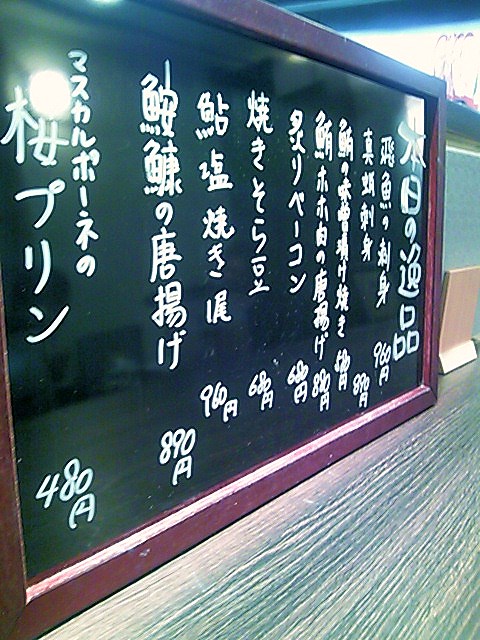 本日の逸品
飛魚の刺身 960円
真蛸刺身 890円
鮪の味噌漬け焼き
鮪ホホ肉の唐揚げ 890円
炙りベーコン 680円
焼きそら豆 680円
鮎塩焼き 960円
鮟鱇の唐揚げ 890円
マスカルポーネの
桜プリン 480円